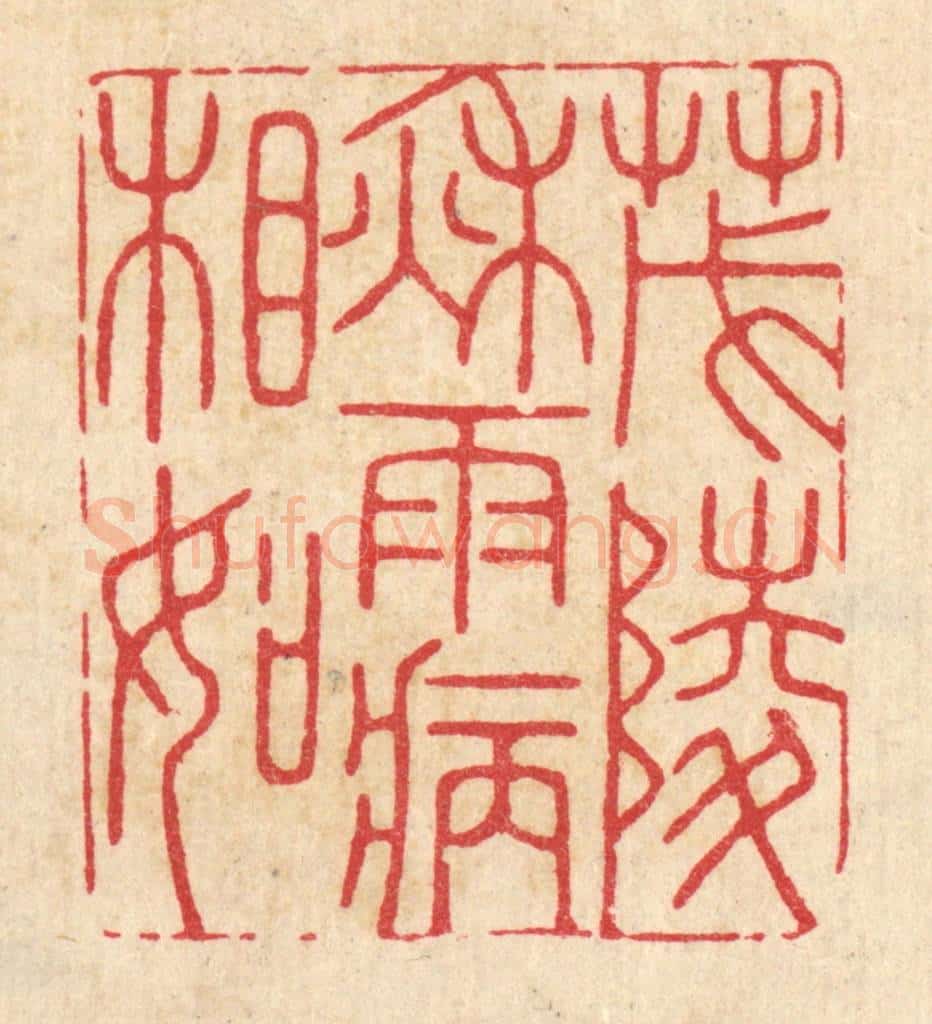 茂陵
秋雨病
相如
Shufawang.CN